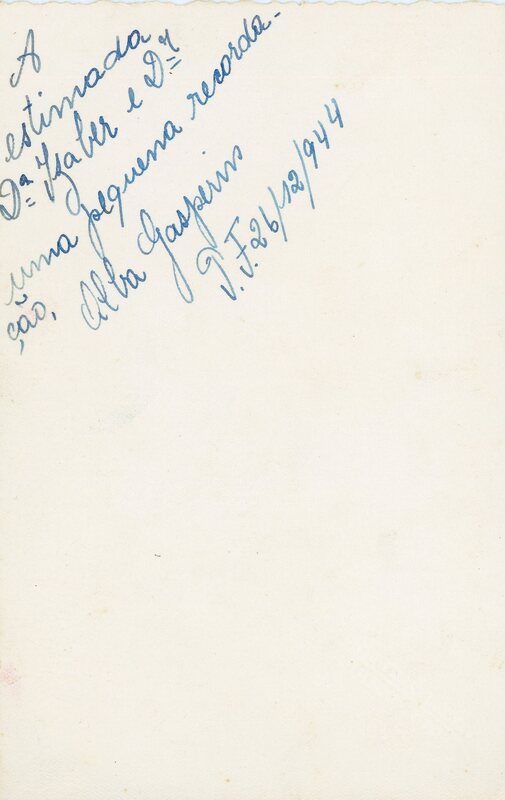 A
estimada
Dª Izabel e Dr
uma pequena recorda-
ção,
Alba Gasperin
P.F. 26/12/944